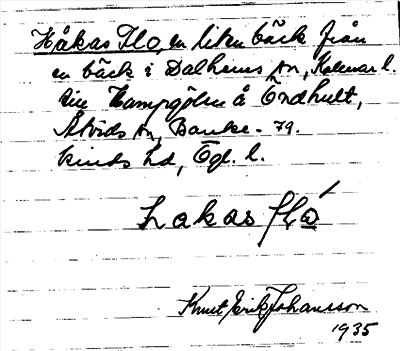 Håkas Flo, en liten bäck från
en bäck i Dalhems sn, Kalmar l.
till Hampgölen å Ördhult,
Åtvids sn, Banke- 79.
kinds hd, Ögl. l.
hakas flo
Knut Erik Johansson
1935